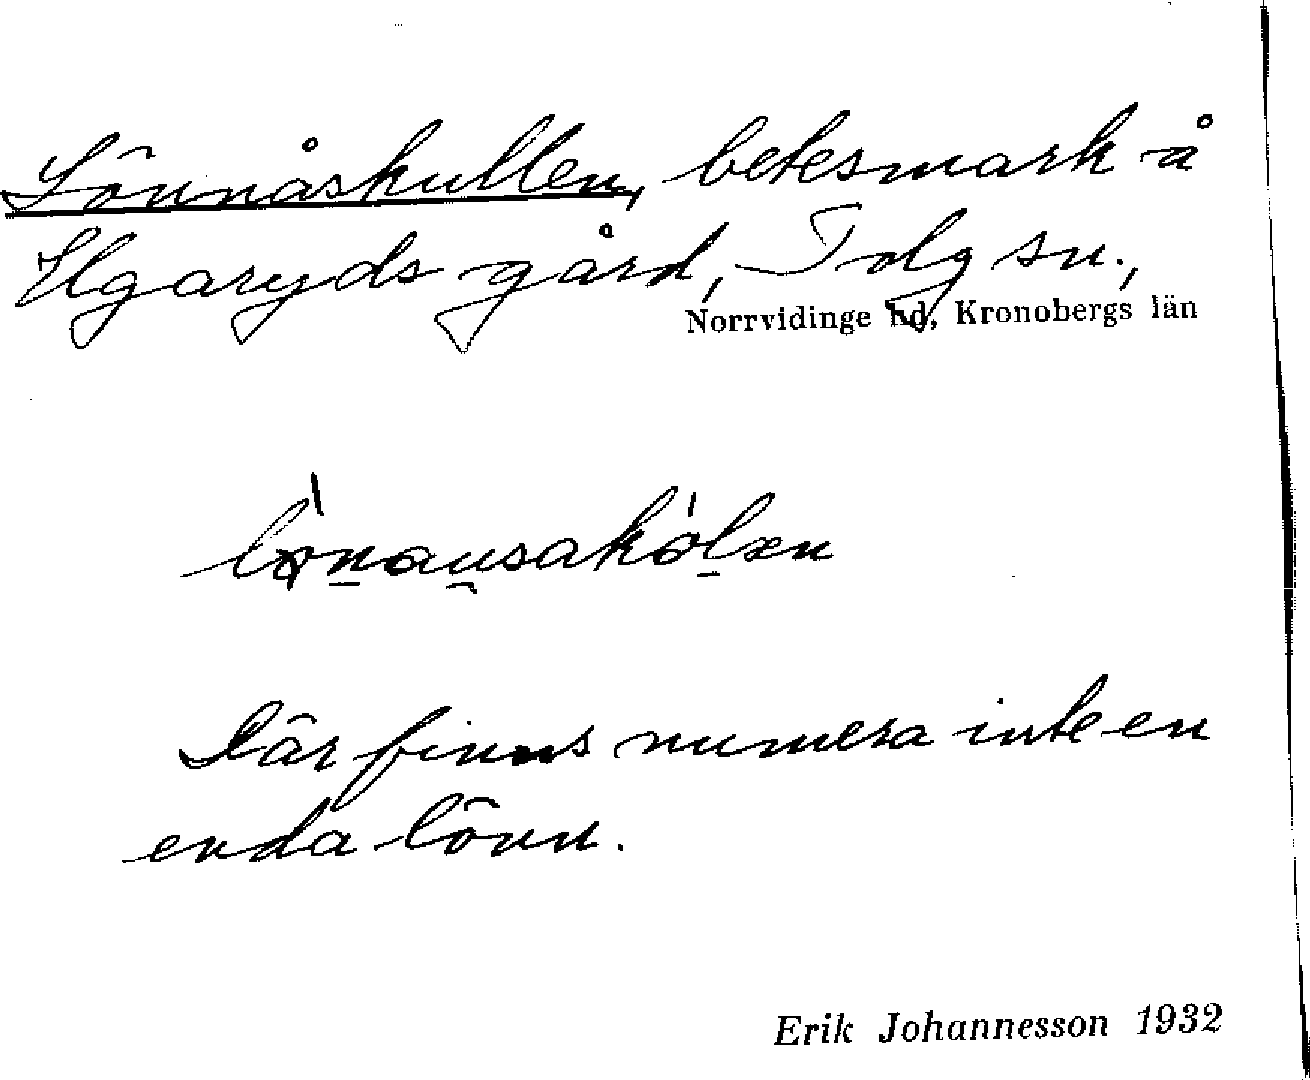 Lönnåskullen, betesmark å
Elgaryds gård, Tolg sn.,
Norrvidinge hd, Kronobergs län
Där finns numera inte en
enda lönn.
Erik Johannesson 1932